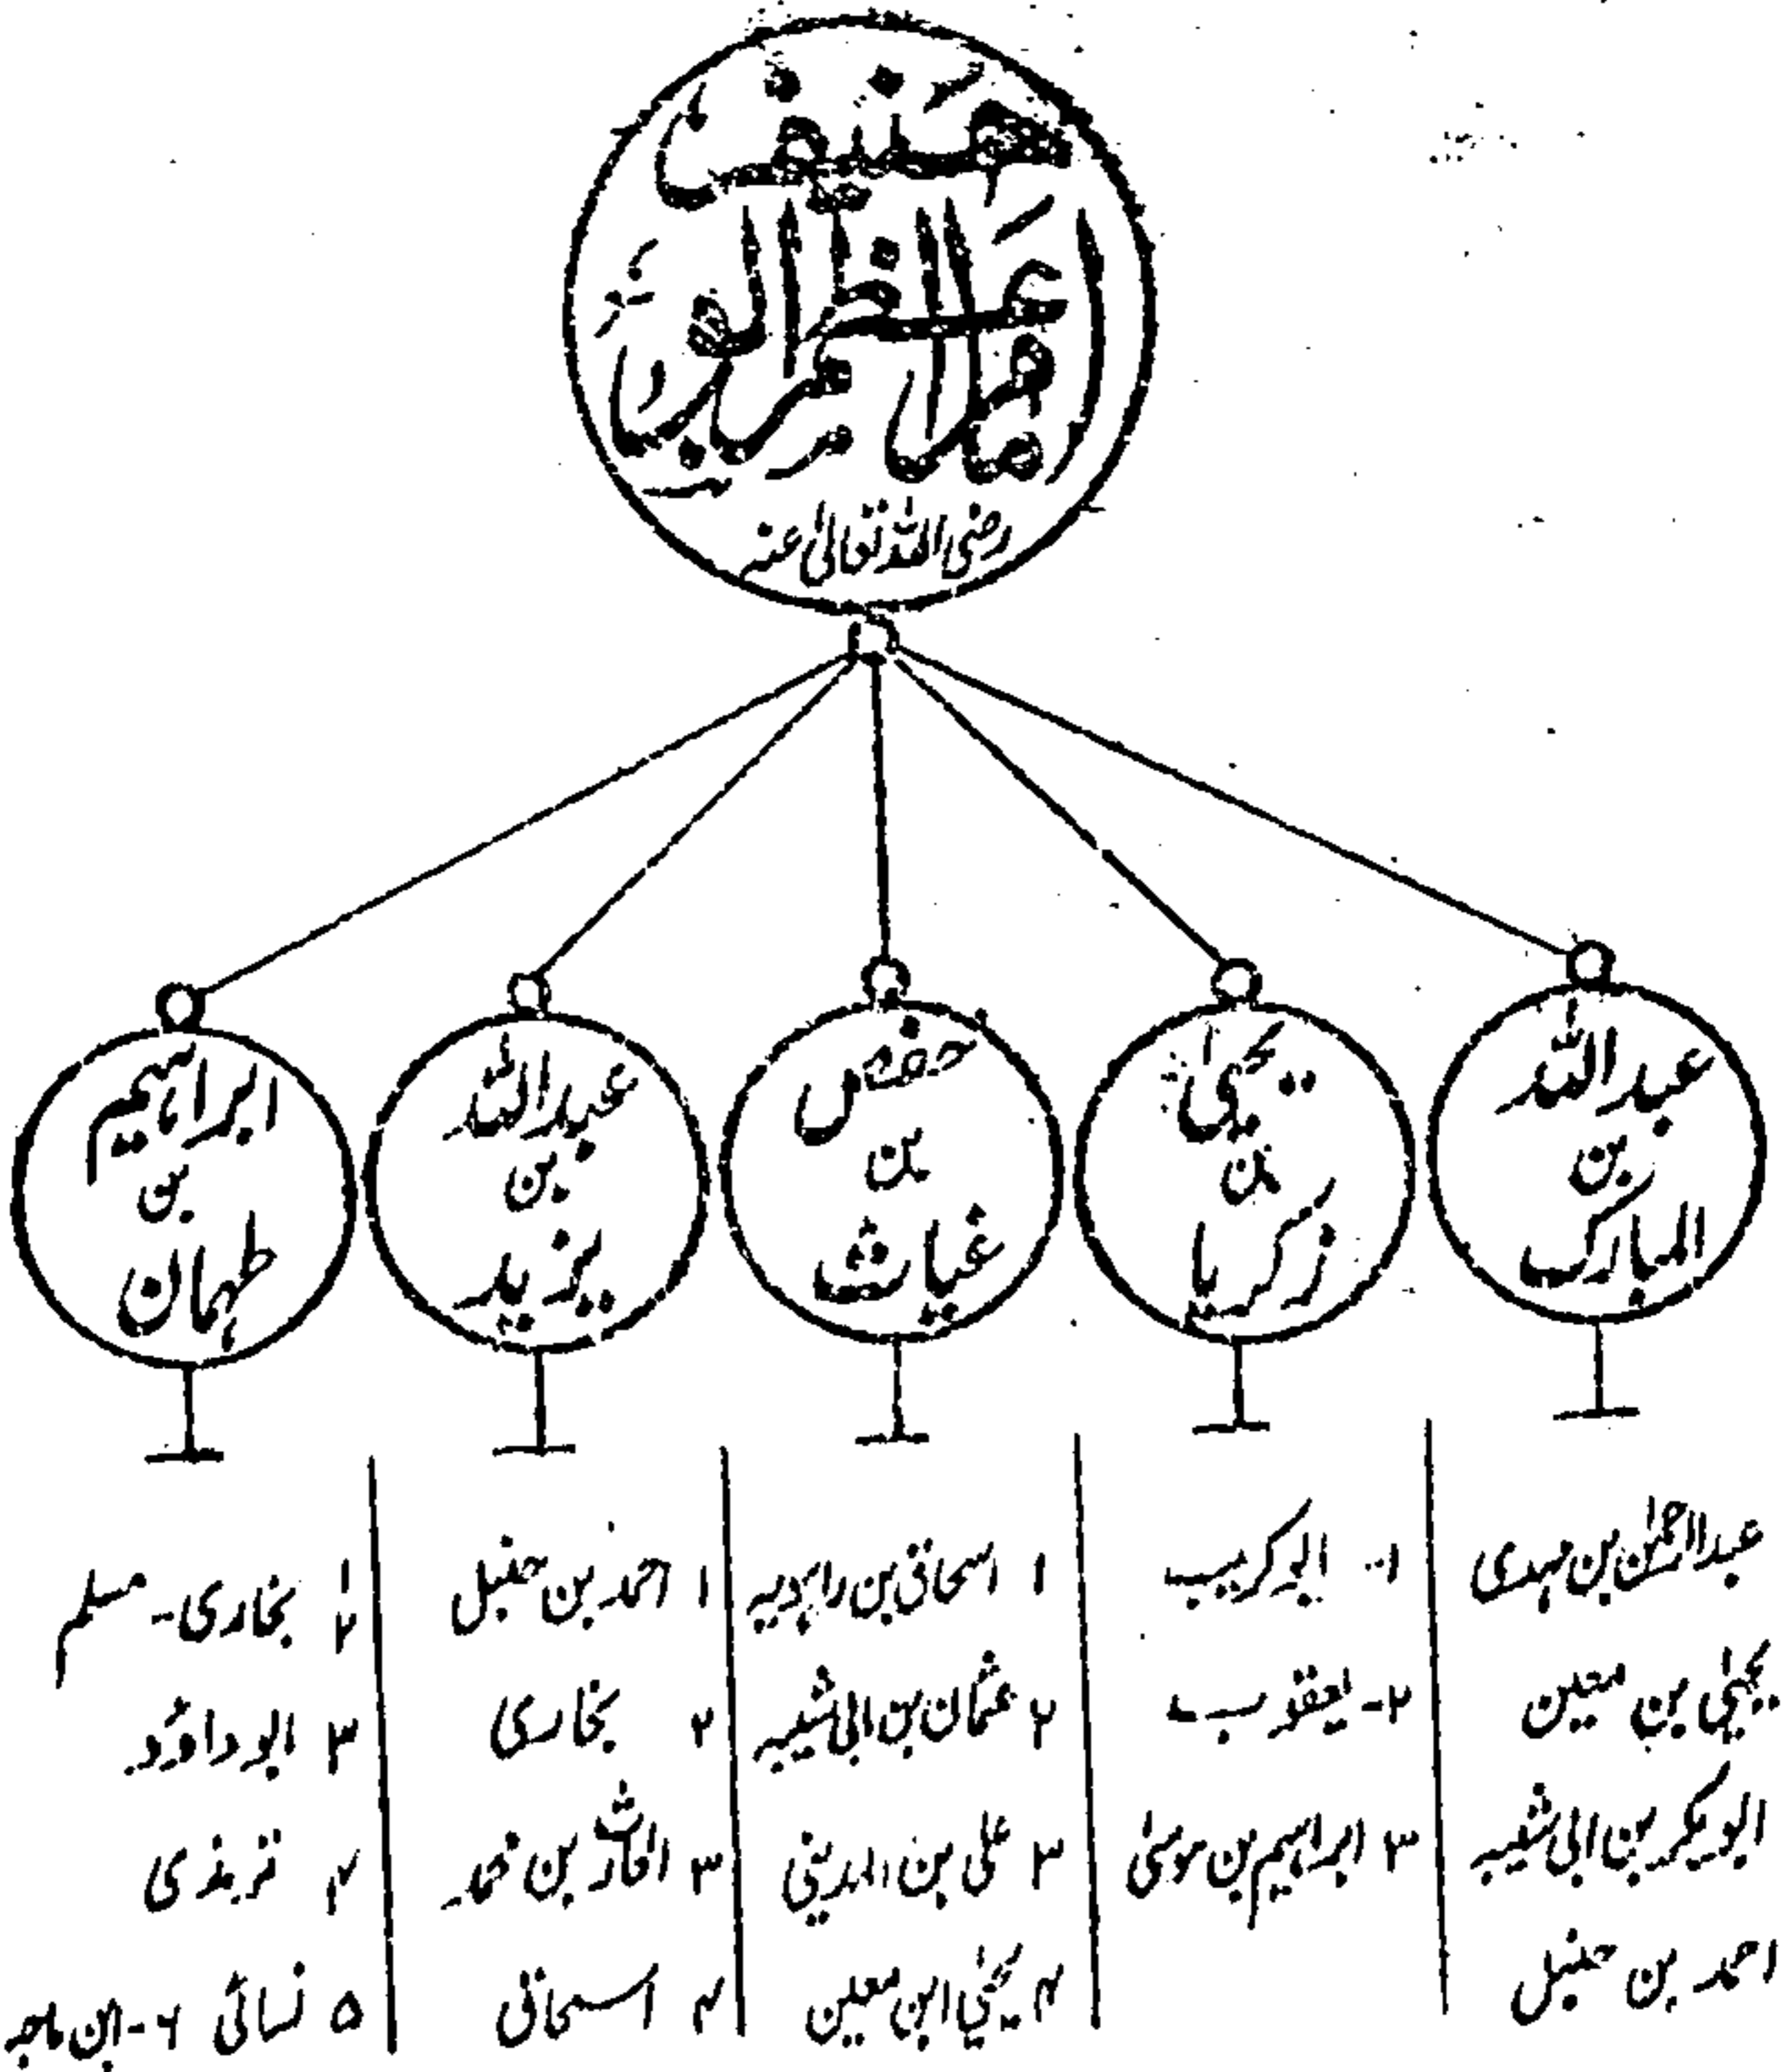 رضی اللہ تعالیٰ عنہ
عبداللہ
بن
المبارک
یحییٰ
بن
زکریا
حفص
بن
غیاث
عبداللہ
بن
یزید
ابراہیم
بن
طہمان
عبدالرحمٰن بن مہدی
یحییٰ بن معین
ابوبکر بن ابی شیبہ
احمد بن حنبل
۱- ابو کریب
۲- یعقوب
۳ ابراہیم بن موسیٰ
۱ اسحاق بن راہویہ
۲ عثمان بن ابی شیبہ
۳ علی بن المدینی
۴ یحییٰ ابن معین
۱ احمد بن حنبل
۲ بخاری
۳ بن محمد
۴ اسحاق
۱ ۲ بخاری - مسلم
۳ ابو داؤد
۴ ترمذی
۵ نسائی ۶- ابن ماجہ